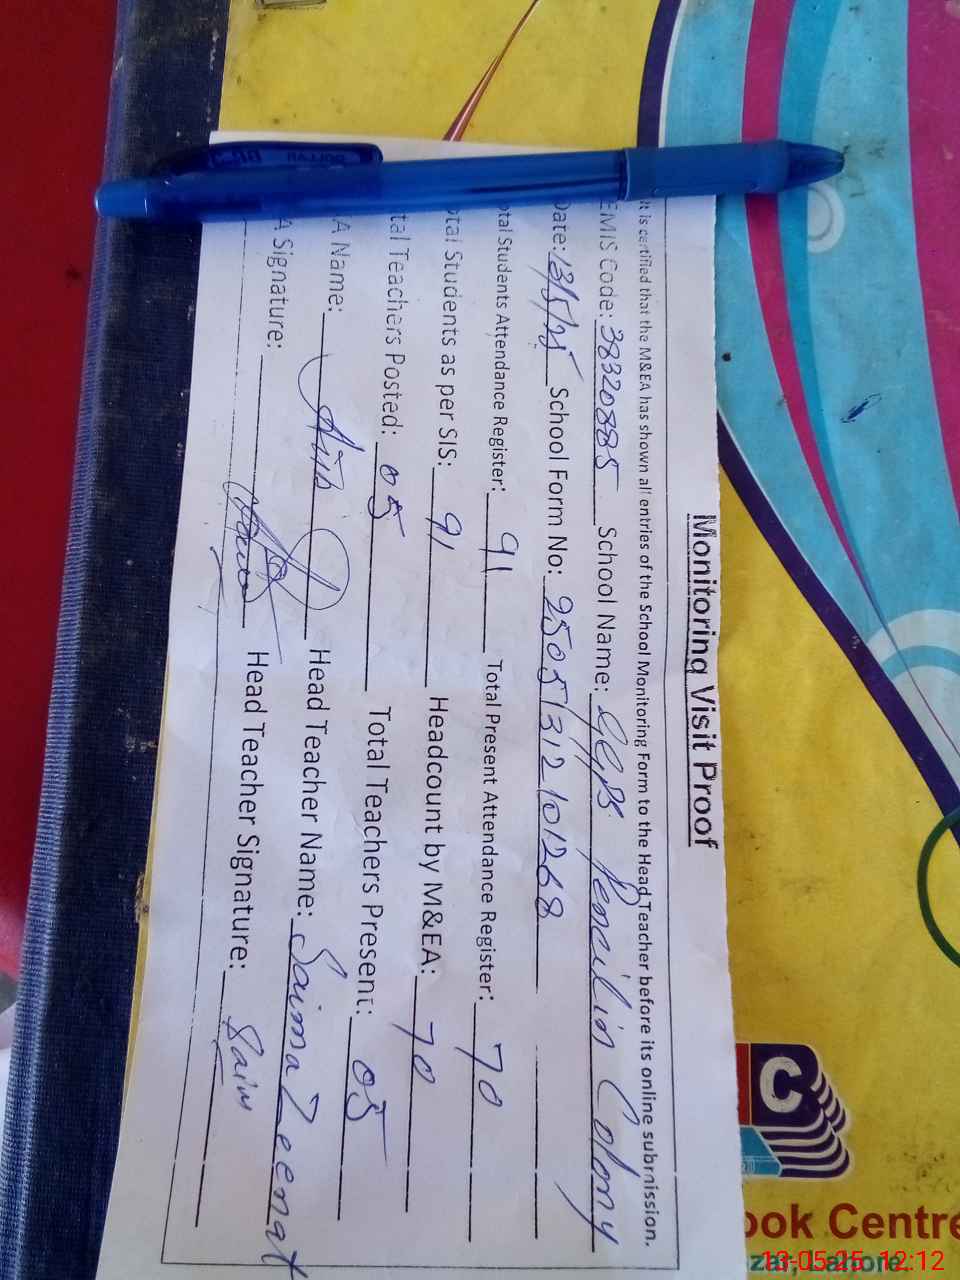 Monitoring Visit Proof
It is certified that the M&EA has shown all entries of the School Monitoring Form to the Head Teacher before its online submission.
EMIS Code: 38320885 School Name: GGPS Pencilin Colony
Date: 13/5/25 School Form No: 25051312101268
otal Students Attendance Register: 91 Total Present Attendance Register: 70
otal Students as per SIS: 91 Headcount by M&EA: 70
tal Teachers Posted: 05 Total Teachers Present: 05
A Name: Head Teacher Name: Saima Zeenat
A Signature: Head Teacher Signature: Saim
C
ook Centre
zar, Lahore.
13-05-25 12:12